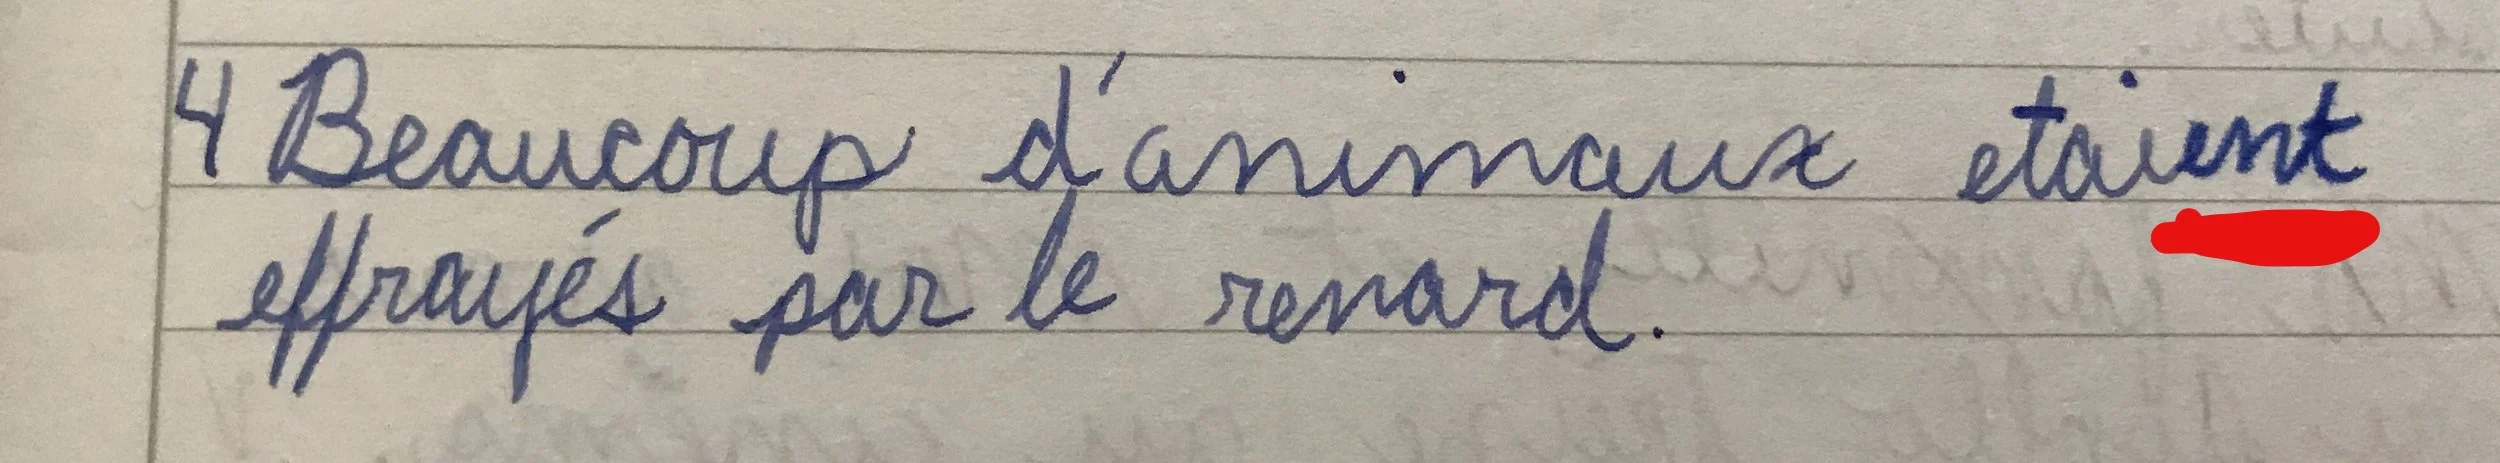 4 Beaucoup d'animaux etaient
effrayés par le renard.